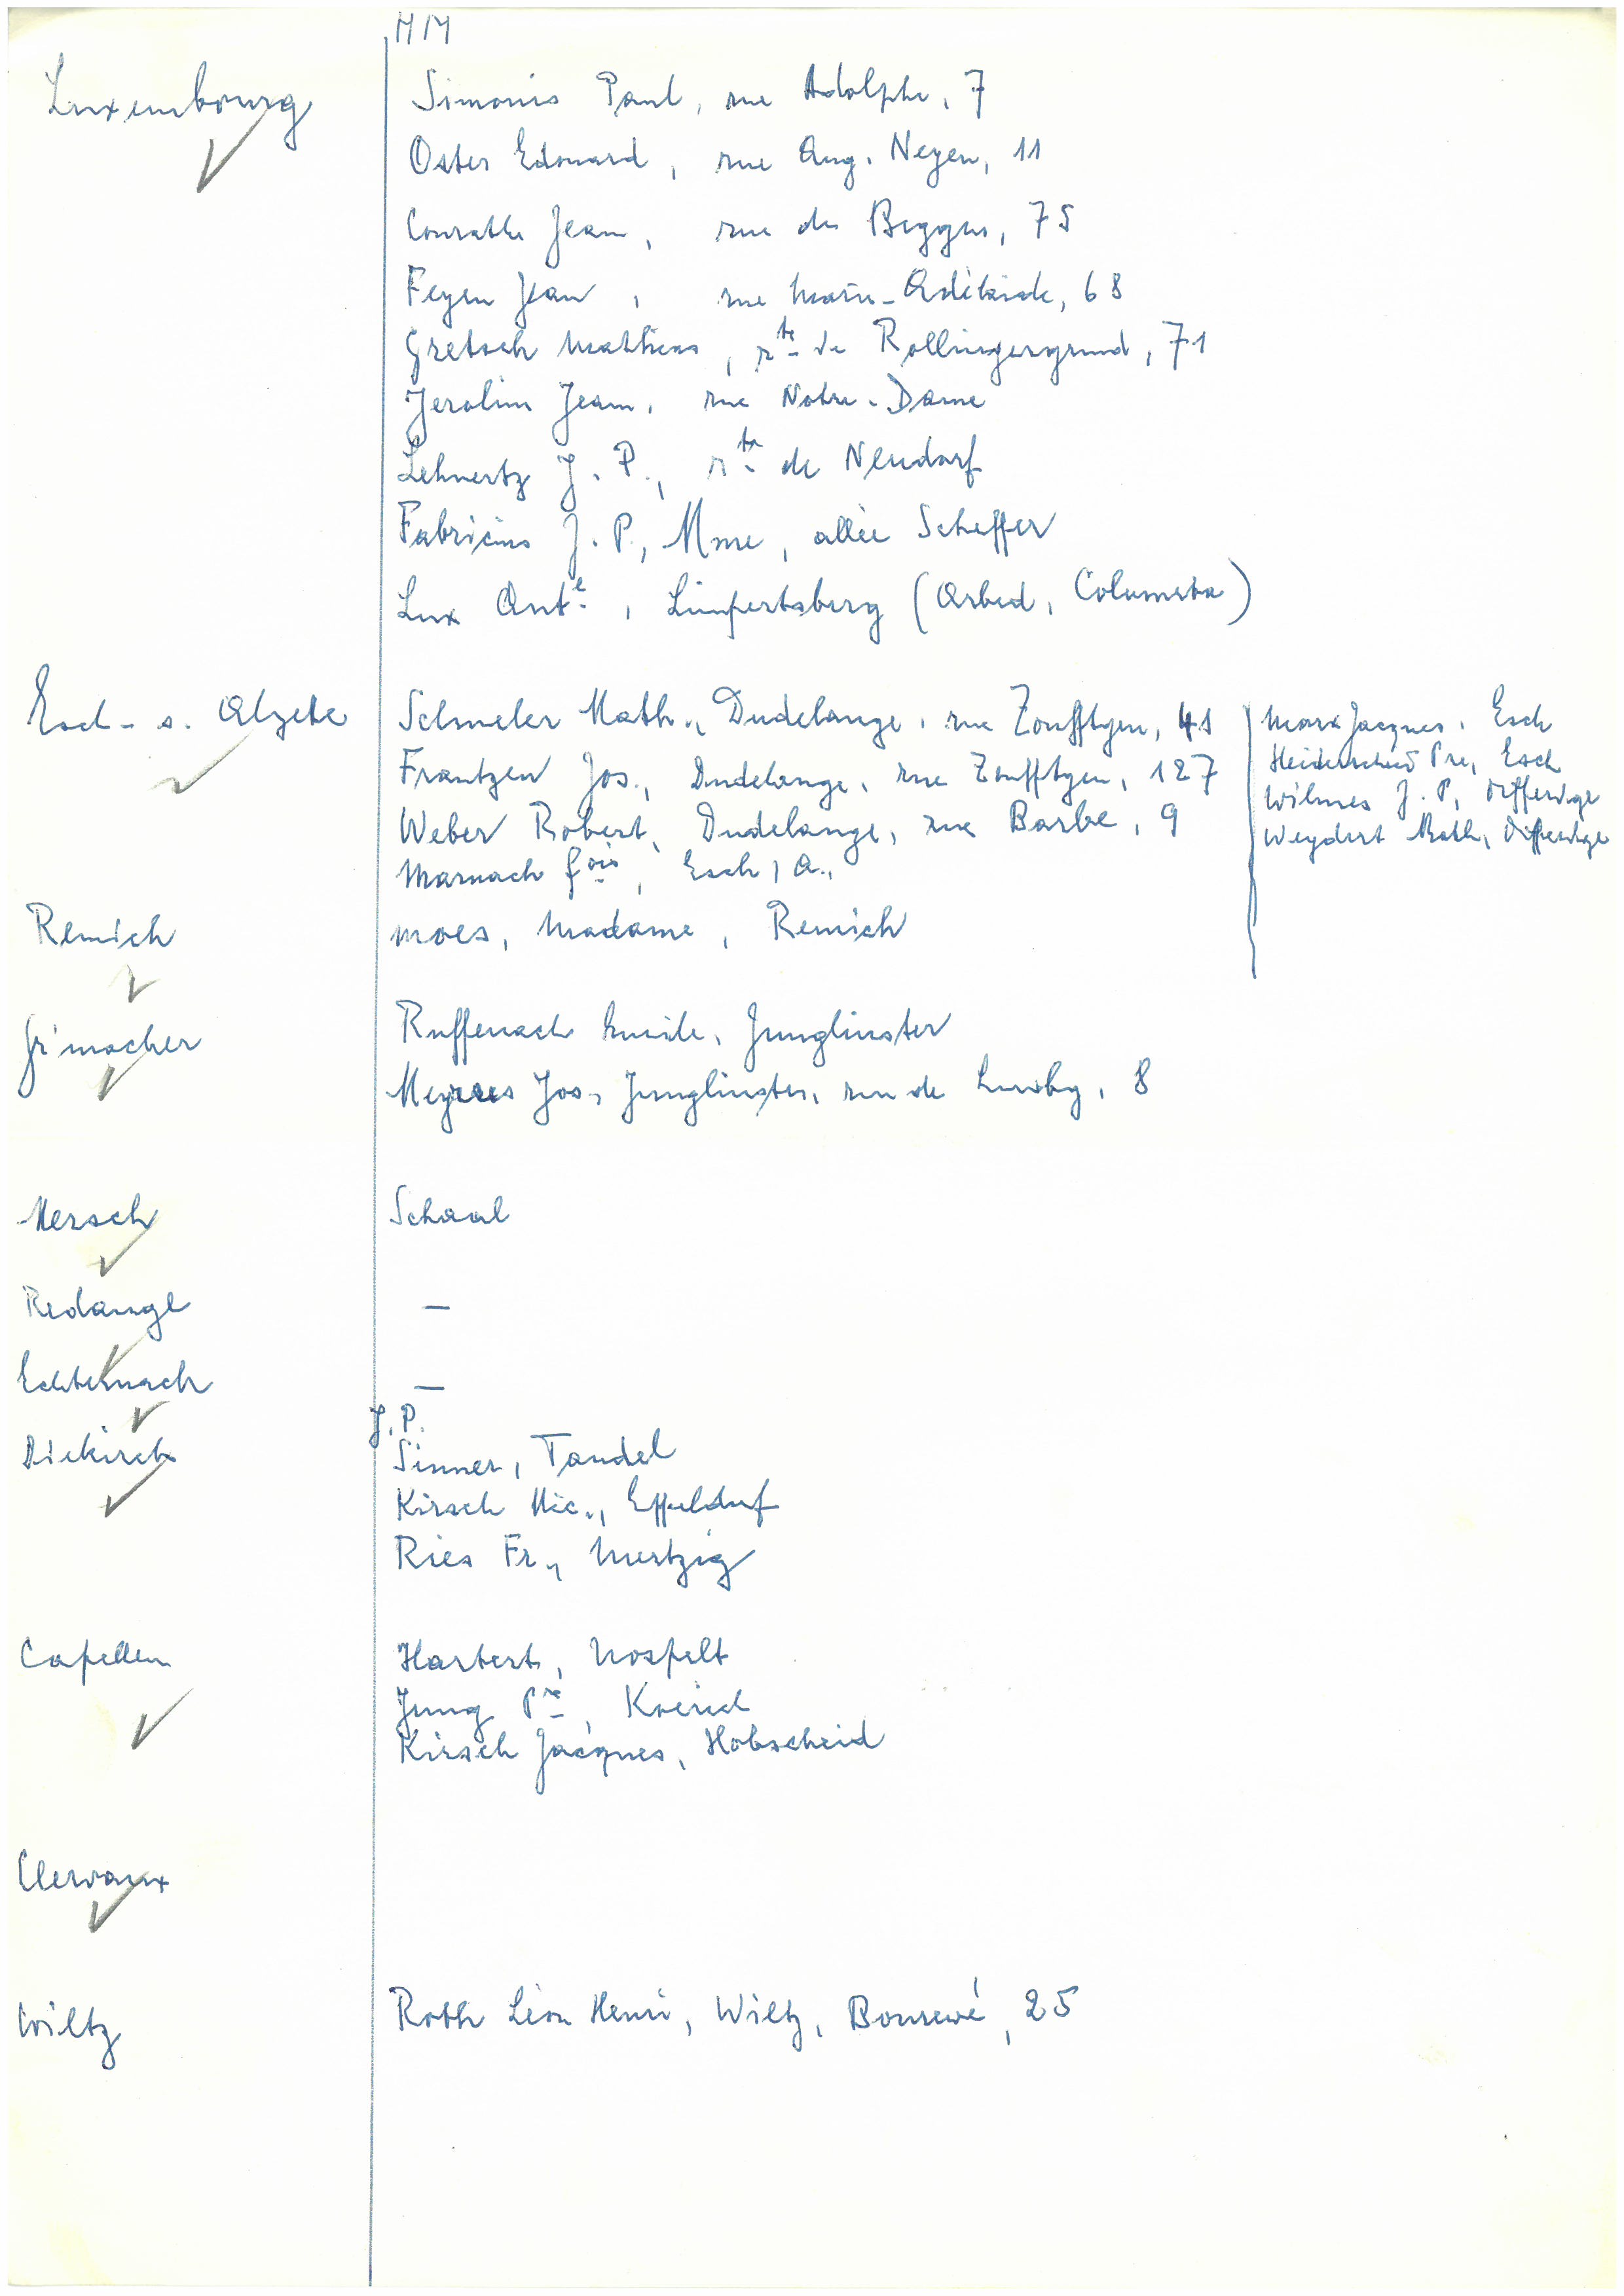 MM
Luxembourg
Simonis Paul, rue Adolphe, 7
Oster Edouard, rue Aug. Neyen, 11
Conrathe Jean, rue de Beggen, 75
Feyen Jean, rue Marie-Adélaïde, 68
Gretsch Mathias, rte de Rollingergrund, 71
Jerolim Jean, rue Notre-Dame
Lehnertz J. P., rte de Neudorf
Fabricius J. P., Mme, allée Scheffer
Lux Ante, Limpertsberg (Arbed, Columeta)
Esch-s. Alzette
Schmeler Math., Dudelange, rue Zoufftgen, 41
Frantzen Jos., Dudelange, rue Zoufftgen, 127
Weber Robert, Dudelange, rue Barbe, 9
Marnach fois, Esch, A.,
Marx Jacques, Esch
Heiderscheid Pre, Esch
Wilmes J. P., Differdge
Weydert Math, Differdge
Remich
Moes, Madame, Remich
Gr'macher
Ruffenach Emile, Junglinster
Meyers Jos, Junglinster, rue de Luxbg, 8
Mersch
Schaal
Redange
—
Echternach
—
Diekirch
J. P.
Sinner, Tandel
Kirsch Nic., Eppeldorf
Ries Fr., Mertzig
Capellen
Hartert, Nospelt
Jung Pre, Koerich
Kirsch Jacques, Hobscheid
Clervaux
Wiltz
Roth Léon Henri, Wiltz, Bouzewé, 25